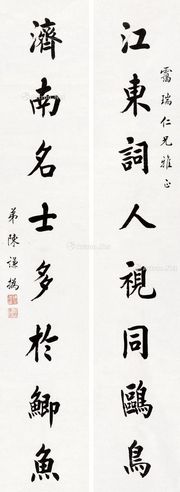 霱瑞仁兄雅正
江東詞人視同鷗鳥
濟南名士多於鯽魚
弟陳謹撝